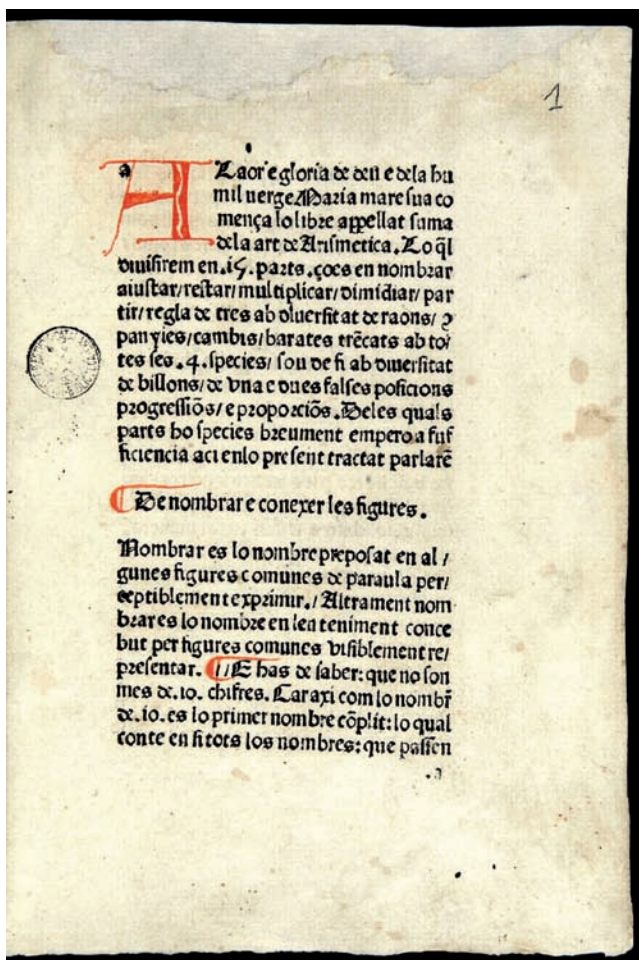 1
A Laor e gloria de deu e dela hu
mil uerge Maria mare sua co
mença lo libre appellat suma
dela art de Arismetica. Lo q̃l
diuisirem en .i5. parts. ço es en nombrar
aiustar/ restar/ multiplicar/ dimidiar/ par
tir/ regla de tres ab diuersitat de raons/ ꝯ
panyies/ cambis/ barates trẽcats ab to/
tes ses .4. species/ sou de fi ab diuersitat
de billons/ de vna e dues falses posicions
progressiõs/ e proporciõs. Deles quals
parts ho species breument empero a suf
ficiencia aci enlo present tractat parlarẽ
De nombrar e conexer les figures.
Nombrar es lo nombre preposat en al/
gunes figures comunes de paraula per/
ceptiblement exprimir./ Altrament nom
brar es lo nombre en lenteniment conce
but per figures comunes visiblement re/
presentar. E has de saber: que no son
mes de .io. chifres. Car axi com lo nombr̃
de .io. es lo primer nombre cõplit: lo qual
conte en si tots los nombres: que passen
.a